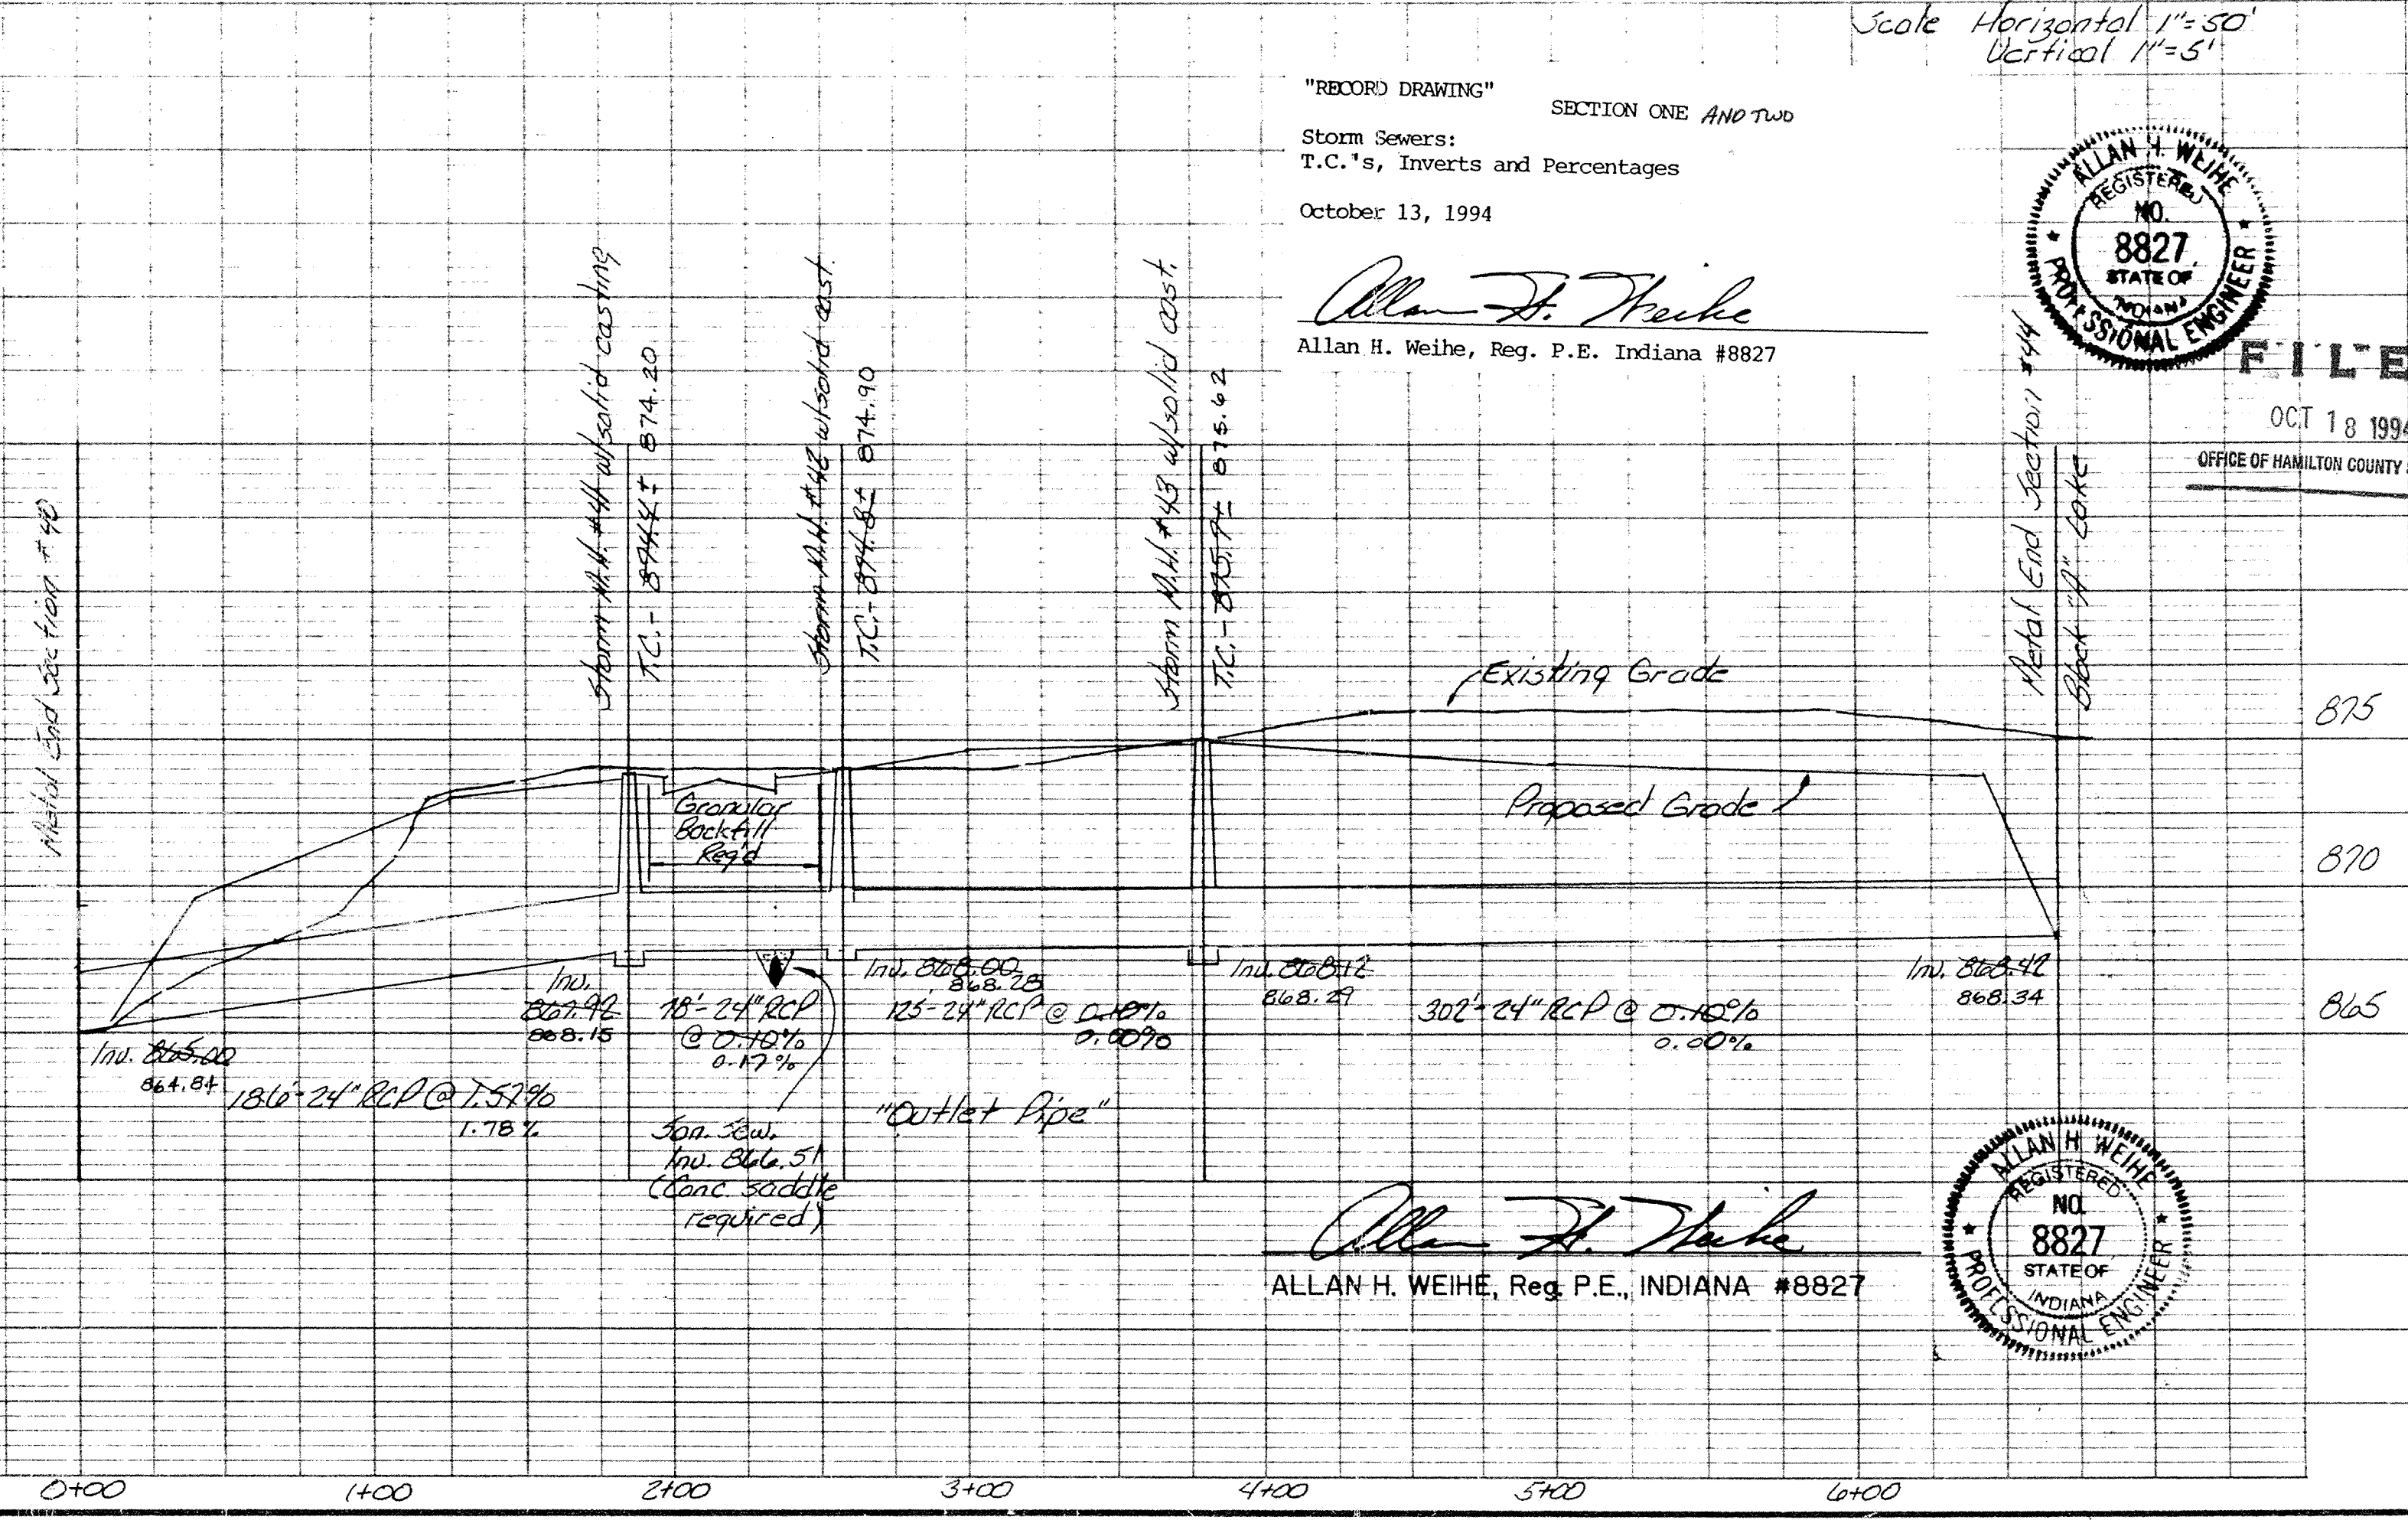 Scale Horizontal 1"=50'
Vertical 1"=5'
"RECORD DRAWING"
SECTION ONE AND TWO
Storm Sewers:
T.C.'s, Inverts and Percentages
October 13, 1994
Allan H. Weihe
Allan H. Weihe, Reg. P.E. Indiana #8827
ALLAN H. WEIHE
REGISTERED
NO.
8827
STATE OF
INDIANA
PROFESSIONAL ENGINEER
FILE
OCT 18 1994
OFFICE OF HAMILTON COUNTY
Metal End Section #40
Storm M.H. #41 w/solid casting
T.C.- 874.4± 874.20
Storm M.H. #42 w/solid cast.
T.C.- 874.8± 874.90
Storm M.H. #43 w/solid cast.
T.C.- 875.7± 875.62
Metal End Section #44
Block "A" Lake
Existing Grade
Proposed Grade
875
870
865
Granular
Backfill
Req'd
Inv. 865.00
864.84
186'-24" RCP @ 1.57%
1.78%
Inv.
867.92
868.15
78'-24" RCP
@ 0.10%
0.17%
San. Sew.
Inv. 866.51
(Conc. saddle
required)
Inv. 868.00
868.28
125'-24" RCP @ 0.10%
0.00%
"Outlet Pipe"
Inv. 868.12
868.29
302'-24" RCP @ 0.10%
0.00%
Inv. 868.42
868.34
Allan H. Weihe
ALLAN H. WEIHE, Reg. P.E., INDIANA #8827
ALLAN H WEIHE
REGISTERED
NO.
8827
STATE OF
INDIANA
PROFESSIONAL ENGINEER
0+00 1+00 2+00 3+00 4+00 5+00 6+00